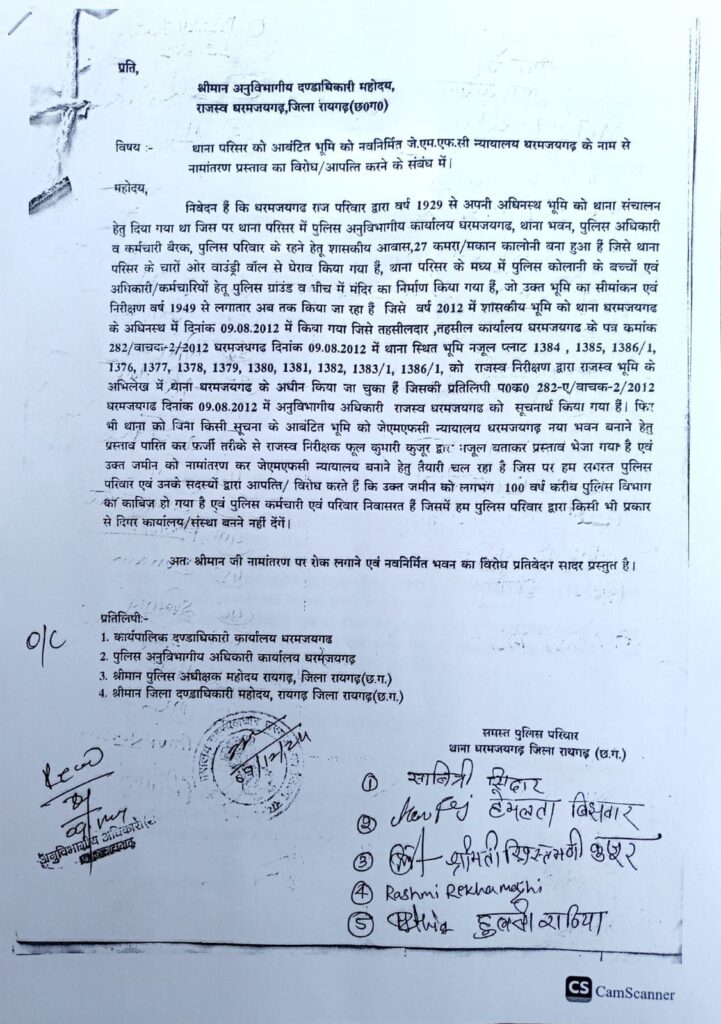 प्रति,
श्रीमान अनुविभागीय दण्डाधिकारी महोदय,
राजस्व धरमजयगढ़,जिला रायगढ़(छ0ग0)
विषय :- थाना परिसर को आबंटित भूमि को नवनिर्मित जे.एम.एफ.सी न्यायालय धरमजयगढ़ के नाम से
नामांतरण प्रस्ताव का विरोध/आपत्ति करने के संबंध में।
महोदय,
निवेदन हैं कि धरमजयगढ राज परिवार द्वारा वर्ष 1929 से अपनी अधिनस्थ भूमि को थाना संचालन
हेतु दिया गया था जिस पर थाना परिसर में पुलिस अनुविभागीय कार्यालय धरमजयगढ, थाना भवन, पुलिस अधिकारी
व कर्मचारी बैरक, पुलिस परिवार के रहने हेतु शासकीय आवास,27 कमरा/मकान कालोनी बना हुआ हैं जिसे थाना
परिसर के चारों ओर वाउंड्री वॉल से घेराव किया गया हैं, थाना परिसर के मध्य में पुलिस कोलानी के बच्चों एवं
अधिकारी/कर्मचारियों हेतु पुलिस ग्रांउड व बीच में मंदिर का निर्माण किया गया हैं, जो उक्त भूमि का सीमांकन एवं
निरीक्षण वर्ष 1949 से लगातार अब तक किया जा रहा हैं जिसे वर्ष 2012 में शासकीय भूमि को थाना धरमजयगढ
के अधिनस्थ में दिनांक 09.08.2012 में किया गया जिसे तहसीलदार ,तहसील कार्यालय धरमजयगढ के पत्र कमांक
282/वाचक-2/2012 धरमजयगढ दिनांक 09.08.2012 में थाना स्थित भूमि नजूल प्लाट 1384 , 1385, 1386/1,
1376, 1377, 1378, 1379, 1380, 1381, 1382, 1383/1, 1386/1, को राजस्व निरीक्षण द्वारा राजस्व भूमि के
अभिलेख में थाना धरमजयगढ के अधीन किया जा चुका हैं जिसकी प्रतिलिपी प0क0 282-ए/वाचक-2/2012
धरमजयगढ दिनांक 09.08.2012 में अनुविभागीय अधिकारी राजस्व धरमजयगढ को सूचनार्थ किया गया हैं। फिर
भी थाना को बिना किसी सूचना के आबंटित भूमि को जेएमएफसी न्यायालय धरमजयगढ़ नया भवन बनाने हेतु
प्रस्ताव पारित कर फर्जी तरीके से राजस्व निरीक्षक फूल कुमारी कुजूर द्वारा नजूल बताकर प्रस्ताव भेजा गया है एवं
उक्त जमीन को नामांतरण कर जेएमएफसी न्यायालय बनाने हेतु तैयारी चल रहा है जिस पर हम समस्त पुलिस
परिवार एवं उनके सदस्यों द्वारा आपत्ति/ विरोध करते हैं कि उक्त जमीन को लगभग 100 वर्ष करीब पुलिस विभाग
का काबिज हो गया है एवं पुलिस कर्मचारी एवं परिवार निवासरत हैं जिसमें हम पुलिस परिवार द्वारा किसी भी प्रकार
से दिगर कार्यालय/संस्था बनने नहीं देंगें।
अतः श्रीमान जी नामांतरण पर रोक लगाने एवं नवनिर्मित भवन का विरोध प्रतिवेदन सादर प्रस्तुत है।
प्रतिलिपीः-
O/C
1. कार्यपालिक दण्डाधिकारी कार्यालय धरमजयगढ
2. पुलिस अनुविभागीय अधिकारी कार्यालय धरमजयगढ़
3. श्रीमान पुलिस अधीक्षक महोदय रायगढ़, जिला रायगढ़(छ.ग.)
4. श्रीमान जिला दण्डाधिकारी महोदय, रायगढ़ जिला रायगढ़(छ.ग.)
समस्त पुलिस परिवार
थाना धरमजयगढ़ जिला रायगढ़ (छ.ग.)
09/12/24
अनुविभागीय अधिकारी
① सावित्री सिदार
② हेमलता बिसवार
③ श्रीमती कुजूर
④ Rashmi Rekha
⑤ राठिया
CS CamScanner